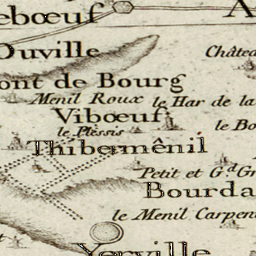 ebœuf
A
Ouville
Châtea
ont de Bourg
Menil Roux
le Har de la
Vibœuf
le Bo
le Plessis
Thibermênil
Petit et Gd Gr
Bourda
le Menil Carpen
Yerville